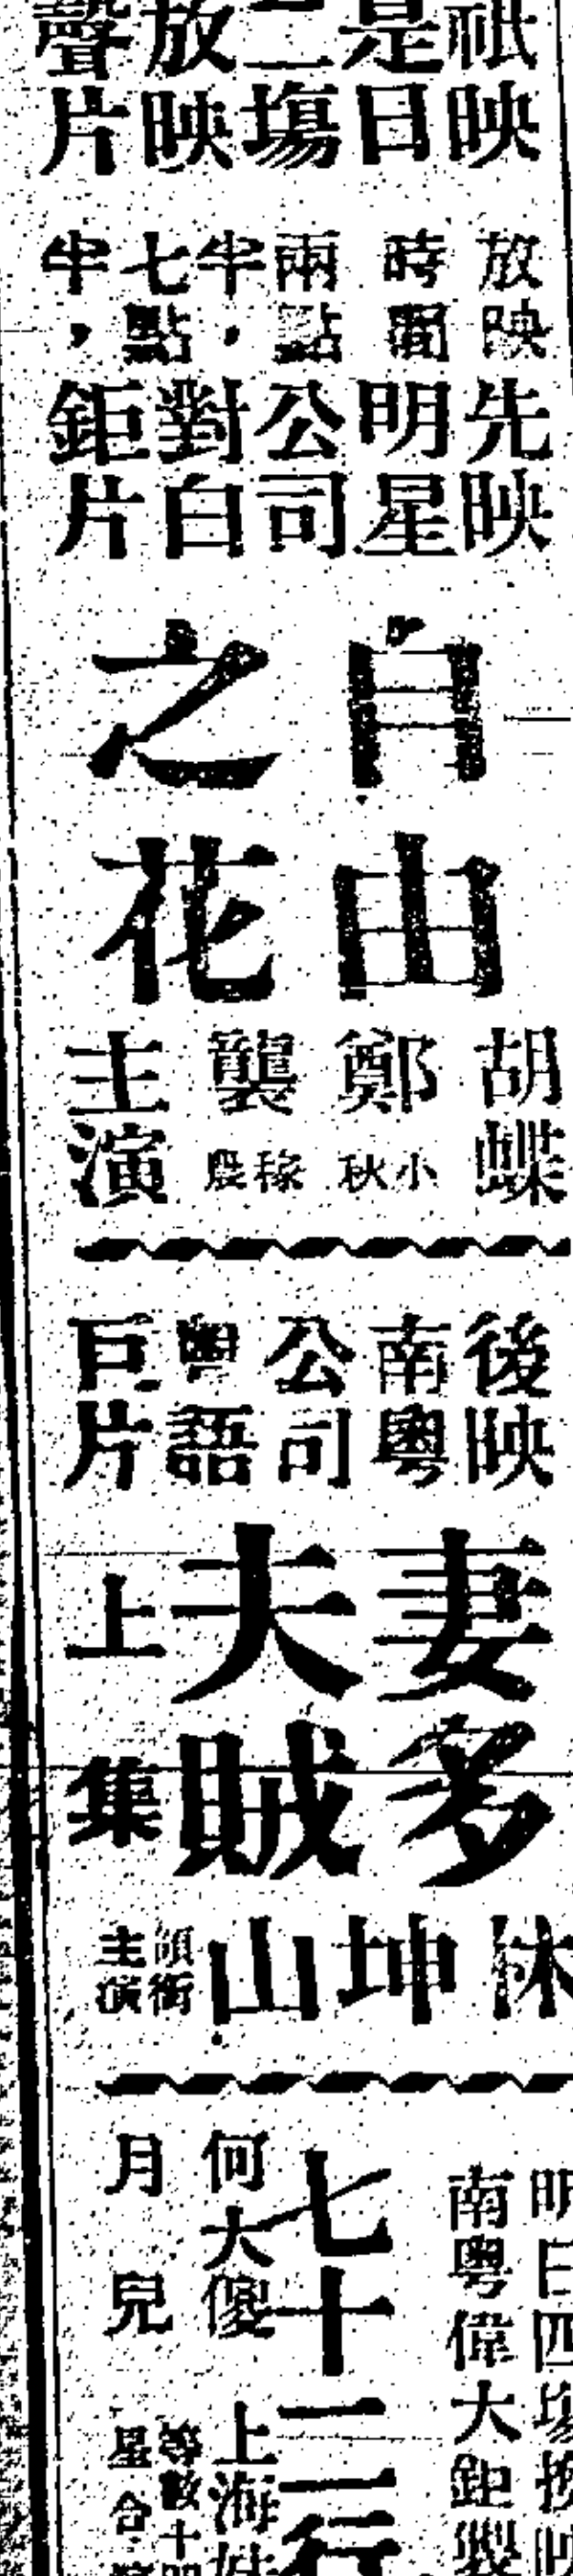 祇映
是日
二場
放映
聲片
放映
時間
兩點
半，
七點
半，
先映
明星
公司
對白
鉅片
白山
之花
胡蝶
鄭小秋
襲稼農
主演
後映
南粵
公司
粵語
巨片
妻多
夫賊
上集
林坤山
領銜
主演
明日四場換映
南粵偉大鉅製
七十二行
何大傻 上海妹
月兒 等數十明
星合演